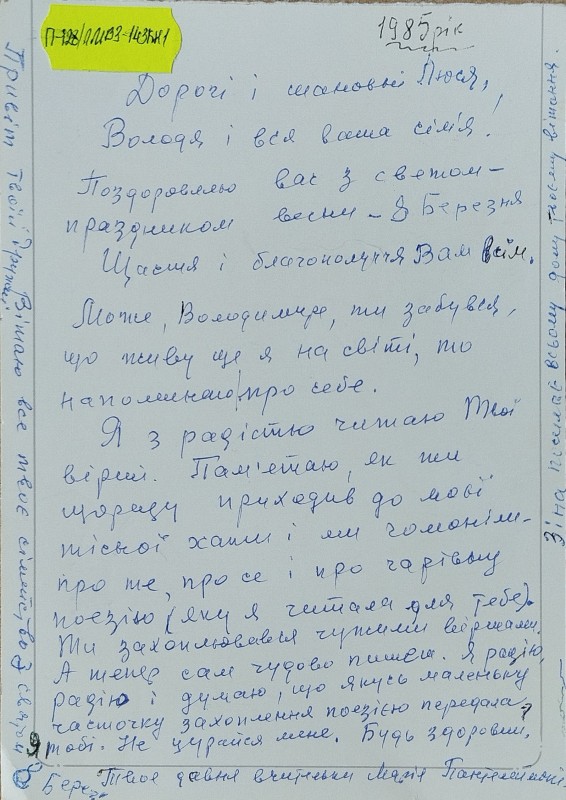 1985 рік
Дорогі і шановні Люся,
Володя і вся ваша сім'я!
Поздоровляю вас з светом –
праздником весни – 8 Березня
Щастя і благополуччя Вам всім.
Може, Володимире, ти забувся,
що живу ще я на світі, то
напоминаю про себе.
Я з радістю читаю Твої
вірші. Пам'ятаю, як ти
щоразу приходив до моєї
тісної хати і ми гомоніли
про те, про се і про чарівну
поезію (яку я читала для тебе).
Ти захоплювався чужими віршами.
А тепер сам чудово пишеш. Я радію,
радію і думаю, що якусь маленьку
часточку захоплення поезією передала
тобі. Не цурайся мене. Будь здоровий.
Твоя давня вчителька Марія Пантелеймоні
Привіт твоїй дружині
Вітаю все твоє сімейство з святом
8 Берез
Зіна посилає всьому дому твоєму вітання.